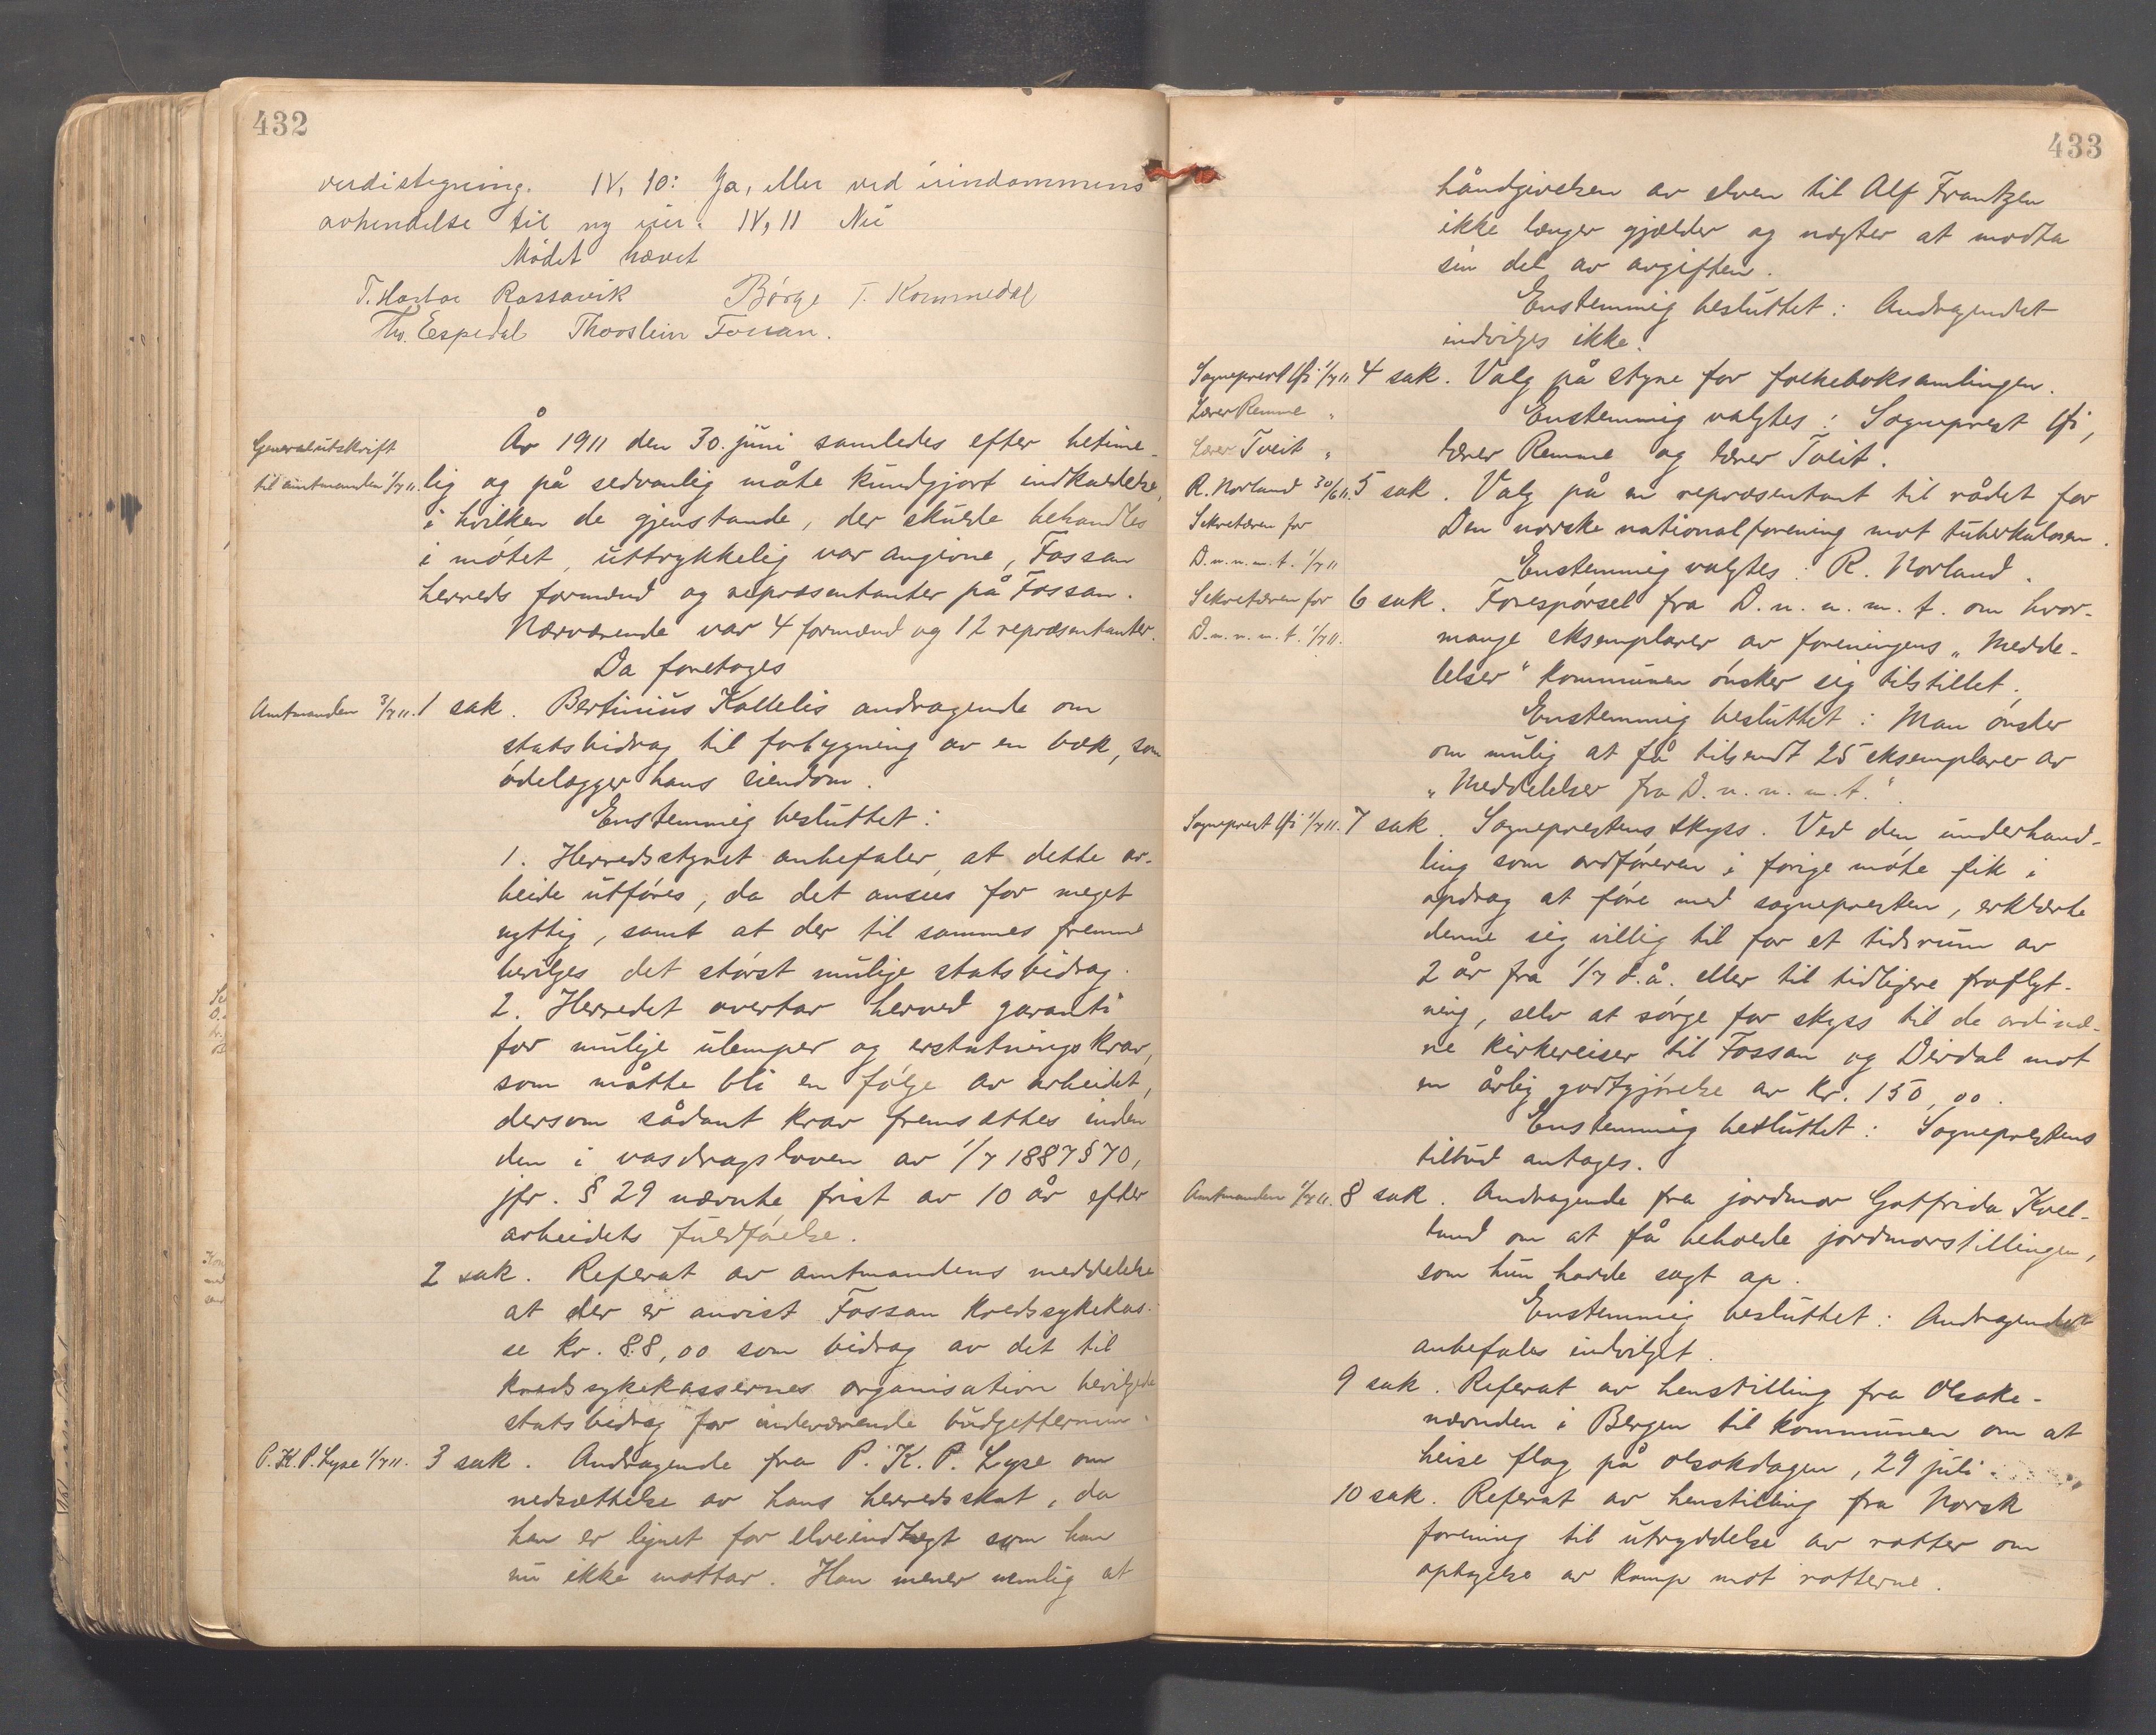 432
verdistegning. IV, 10: Ja, eller ved eiendommens
avhendelse til ny eier. IV, 11 Nei
Mødet hævet
Rossavik Børge T. Kommedal
Espedal Thorstein Fossan.
Generalutskrift
til amtmanden 1/7 11.
År 1911 den 30. juni samledes efter betime-
lig og på sedvanlig måte kundgjort indkaldelse,
i hvilken de gjenstande, der skulde behandles
i møtet, uttrykkelig var angivne, Fossan
herreds formænd og repræsentanter på Fossan.
Nærværende var 4 formænd og 12 repræsentanter.
Da foretoges
Amtmanden 3/7 11. 1 sak. Bertinius Kallelis andragende om
statsbidrag til forbygning av en bæk, som
ødelægger hans eiendom.
Enstemmig besluttet:
1. Herredsstyret anbefaler, at dette ar-
beide utføres, da det ansees for meget
nyttig, samt at der til sammes fremme
bevilges det størst mulige statsbidrag.
2. Herredet overtar herved garanti
for mulige ulemper og erstatningskrav,
som måtte bli en følge av arbeidet,
dersom sådant krav fremsættes inden
den i vasdragsloven av 1/7 1887 § 70,
jfr. § 29 nævnte frist av 10 år efter
arbeidets fuldførelse.
2 sak. Referat av amtmandens meddelelse
at der er anvist Fossan kredssykekas-
se kr. 88,00 som bidrag av det til
kredssykekassernes organisation bevilgede
statsbidrag for indeværende budgettermin.
P. K. P. Lyse 1/7 11. 3 sak. Andragende fra P. K. P. Lyse om
nedsættelse av hans herredsskat, da
han er lignet for elveindtægt som han
nu ikke mottar. Han mener nemlig at
433
håndgivelsen av elven til Alf Frantzen
ikke længer gjælder og nægter at modta
sin del av avgiften.
Enstemmig besluttet: Andragendet
indvilges ikke.
Sogneprest Øi 1/7 11 4 sak. Valg på styre for folkeboksamlingen.
Lærer Remme " Enstemmig valgtes: Sogneprest Øi,
Lærer Tveit " lærer Remme og lærer Tveit.
R. Norland 30/6 11. 5 sak. Valg på en repræsentant til rådet for
Sekretæren for Den norske nationalforening mot tuberkulosen.
D. n. n. m. t. 1/7 11 Enstemmig valgtes: R. Norland.
Sekretæren for 6 sak. Forespørsel fra D. n. n. m. t. om hvor-
D. n. n. m. t. 1/7 11. mange eksemplarer av foreningens „Medde-
lelser" kommunen ønsker sig tilstillet.
Enstemmig besluttet: Man ønsker
om mulig at få tilsendt 25 eksemplarer av
„Meddelelser fra D. n. n. m. t."
Sogneprest Øi 1/7 11. 7 sak. Sogneprestens skyss. Ved den underhand-
ling som ordføreren i forige møte fik i
opdrag at føre med sognepresten, erklærte
denne sig villig til for et tidsrum av
2 år fra 1/7 d.å. eller til tidligere fraflyt-
ning, selv at sørge for skyss til de ordinæ-
re kirkereiser til Fossan og Dirdal mot
en årlig godtgjørelse av kr. 150,00.
Enstemmig besluttet: Sogneprestens
tilbud antages.
Amtmanden 1/7 11. 8 sak. Andragende fra jordmor Gotfrida Kvel-
land om at få beholde jordmorstillingen,
som hun hadde sagt op.
Enstemmig besluttet: Andragendet
anbefales indvilget.
9 sak. Referat av henstilling fra Olsoks-
nævnden i Bergen til kommunen om at
heise flag på olsokdagen, 29 juli.
10 sak. Referat av henstilling fra Norsk
forening til utryddelse av rotter om
optagelse av kamp mot rotterne.